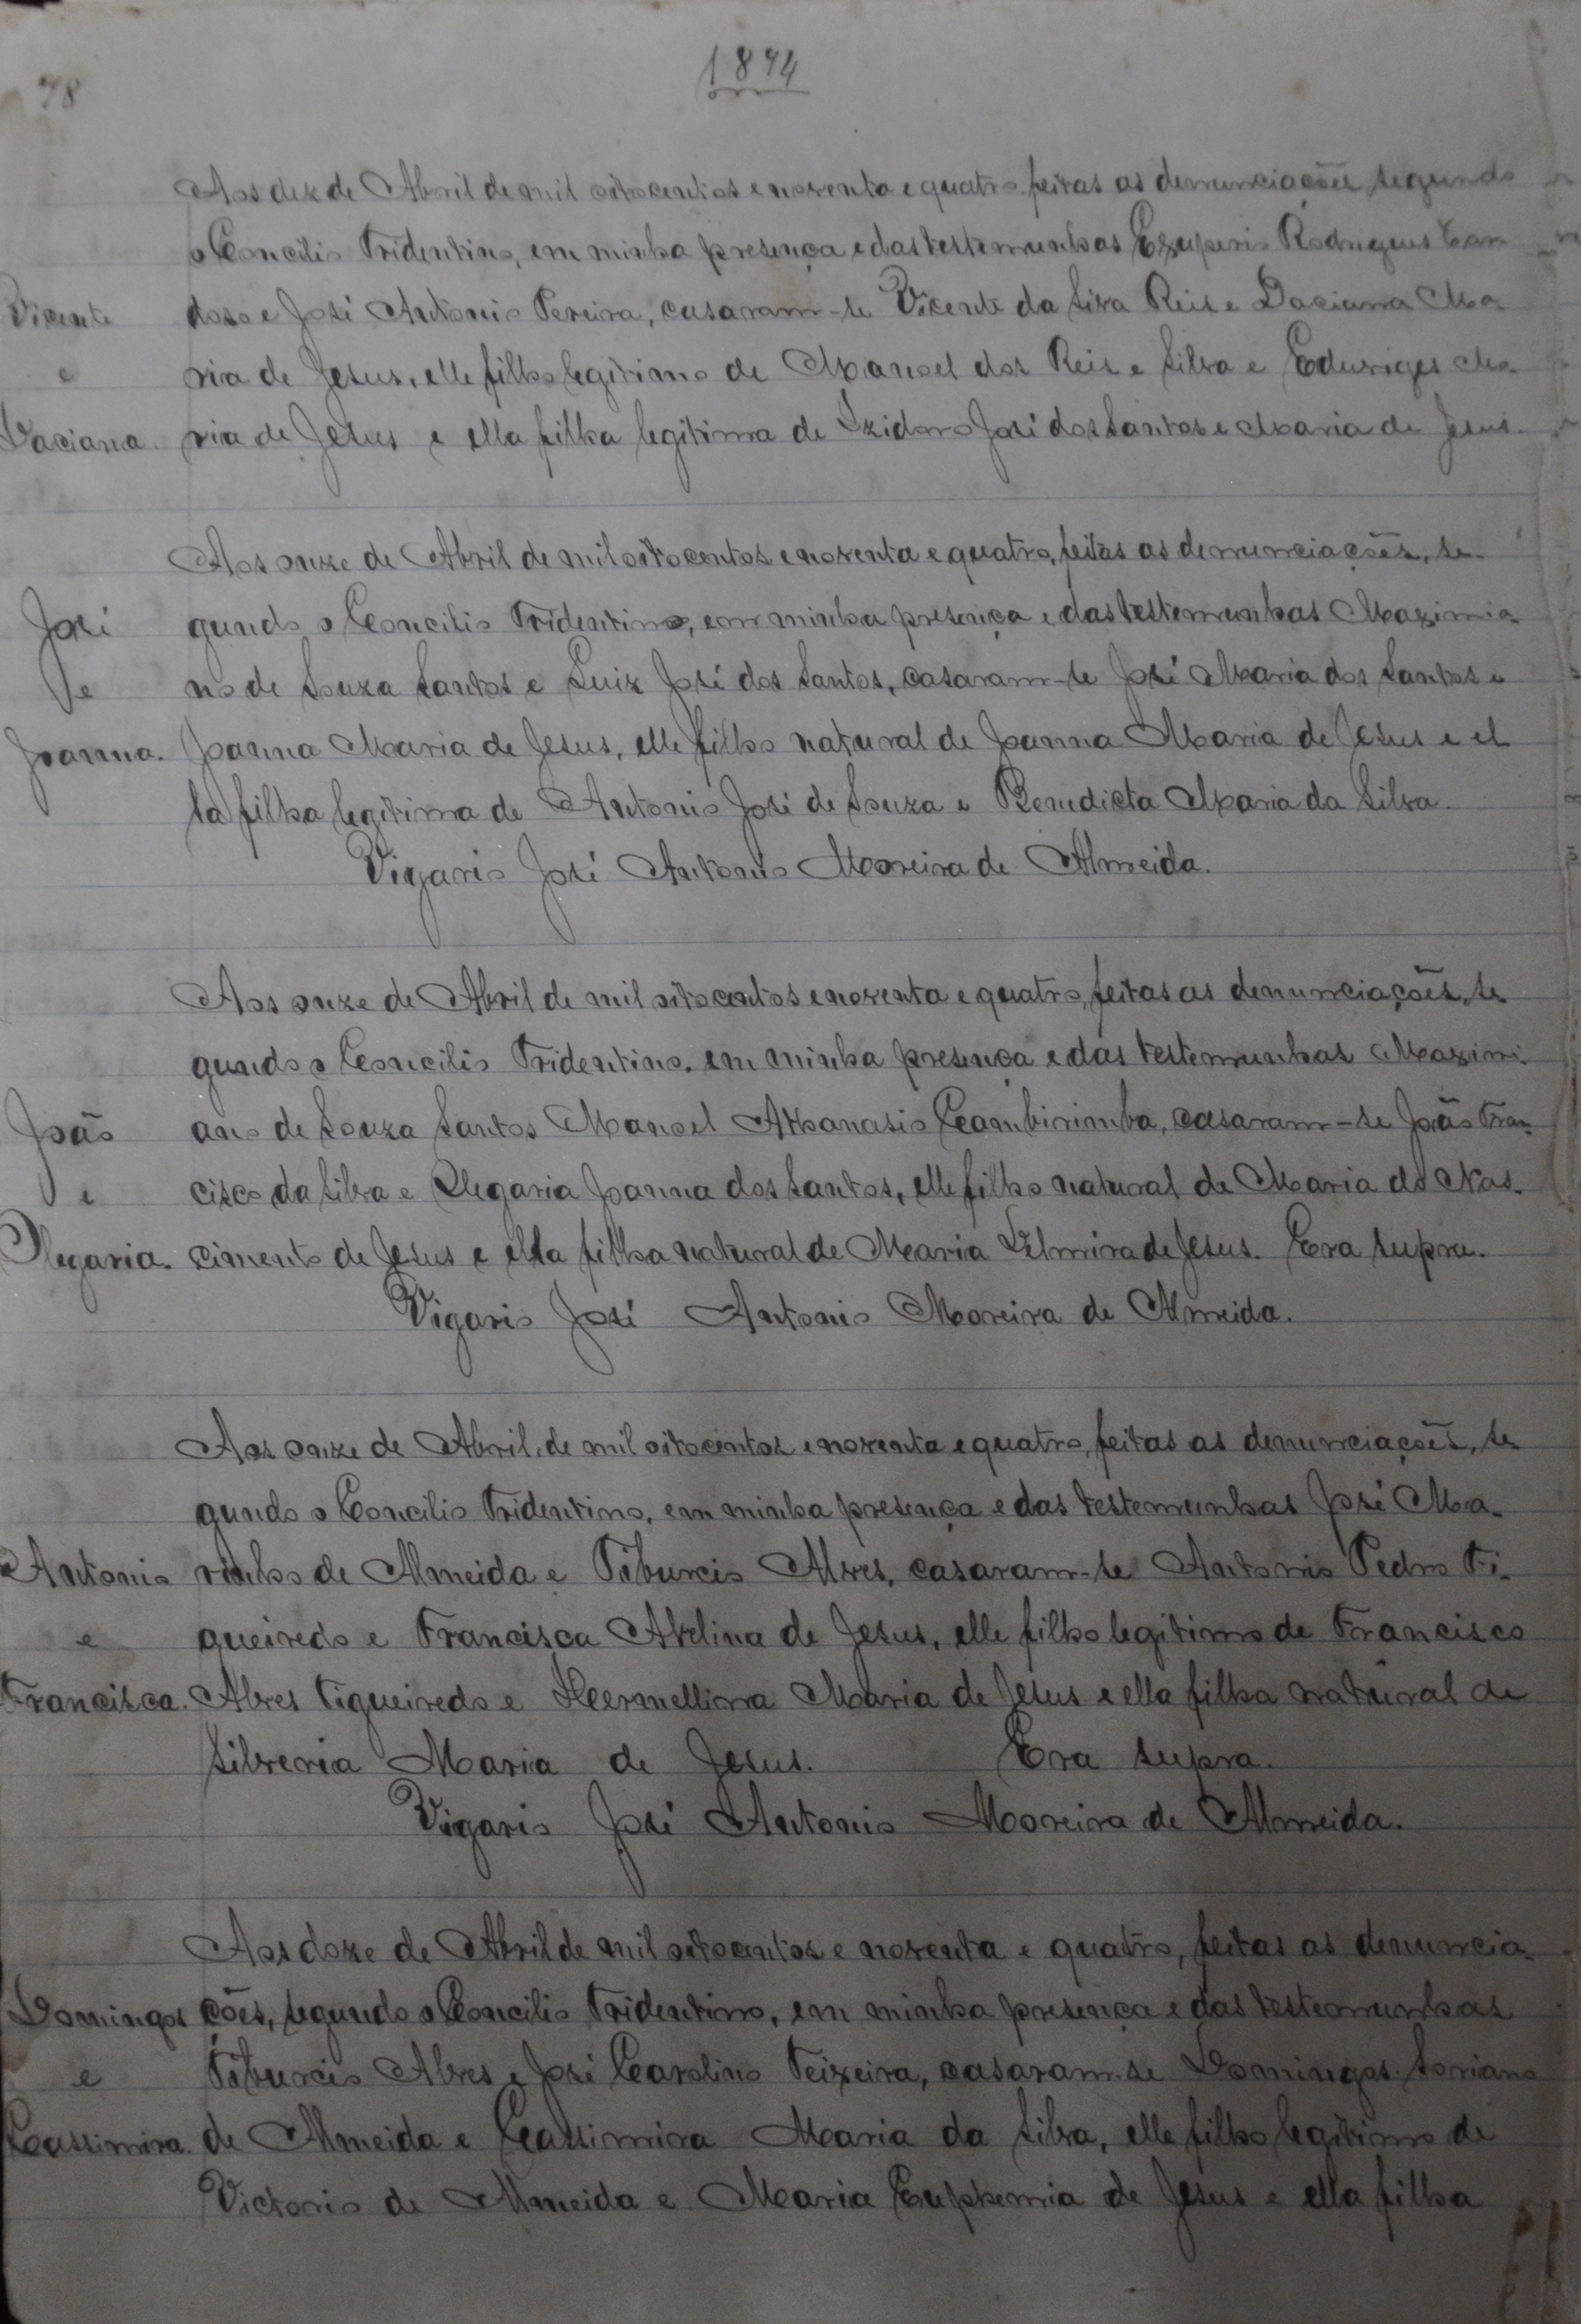 78
1894
Aos dez de Abril de mil oitocentos e noventa e quatro, feitas as denunciações, segundo
o Concilio Tridentino, em minha presença e das testemunhas Exuperio Rodrigues Car
Vicente doso e José Antonio Pereira, casaram-se Vicente da Silva Reis e Daciana Ma-
e ria de Jesus, elle filho legitimo de Manoel dos Reis e Silva e Eduviges Ma-
Daciana. ria de Jesus e ella filha legitima de Izidoro José dos Santos e Maria de Jesus.
Aos onze de Abril de mil oitocentos e noventa e quatro, feitas as denunciações, se-
José gundo o Concilio Tridentino, em minha presença e das testemunhas Maximia-
e no de Souza Santos e Luiz José dos Santos, casaram-se José Maria dos Santos e
Joanna. Joanna Maria de Jesus, elle filho natural de Joanna Maria de Jesus e el
la filha legitima de Antonio José de Souza e Benedicta Maria da Silva.
Vigario José Antonio Moreira de Almeida.
Aos onze de Abril de mil oitocentos e noventa e quatro, feitas as denunciações, se-
gundo o Concilio Tridentino, em minha presença e das testemunhas Maximi-
João ano de Souza Santos Manoel Athanasio Cambirimba, casaram-se João Fran-
e cisco da Silva e Olegaria Joanna dos Santos, elle filho natural de Maria do Nas-
Olegaria. cimento de Jesus e ella filha natural de Maria Zelmira de Jesus. Era supra.
Vigario José Antonio Moreira de Almeida.
Aos onze de Abril de mil oitocentos e noventa e quatro, feitas as denunciações, se-
gundo o Concilio Tridentino, em minha presença e das testemunhas José Ma-
Antonio rinho de Almeida e Tiburcio Alves, casaram-se Antonio Pedro Fi-
e gueiredo e Francisca Avelina de Jesus, elle filho legitimo de Francisco
Francisca. Alves Figueiredo e Hermellinna Maria de Jesus e ella filha natural de
Silveria Maria de Jesus. Era supra.
Vigario José Antonio Moreira de Almeida.
Aos doze de Abril de mil oitocentos e noventa e quatro, feitas as denuncia-
Domingos ções, segundo o Concilio Tridentino, em minha presença e das testemunhas
e Tiburcio Alves e José Carolino Teixeira, casaram-se Domingos Soriano
Cassimira. de Almeida e Cassimira Maria da Silva, elle filho legitimo de
Victorio de Almeida e Maria Euphemia de Jesus e ella filha